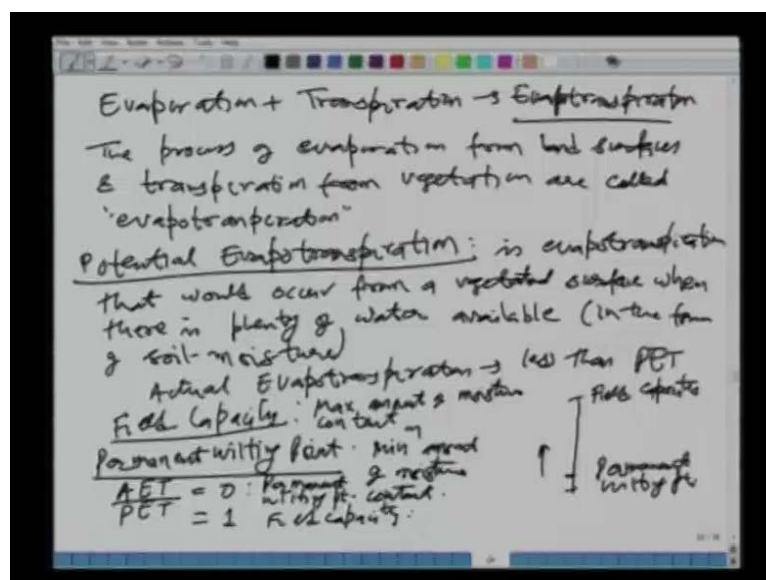 Evaporation + Transpiration → Evaptranspiration
The process of evaporation from land surfaces
& transpiration from vegetation are called
"evapotranpiration"
Potential Evapotranspiration: is evapotranspiration
that would occur from a vegetated surface when
there is plenty of water available (in the form
of soil-moisture)
Actual Evapotranspiration → less than PET
Field Capacity: Max. amount of moisture
content
Permanent Wilting Point. Min amount
of moisture
content.
AET/PET = 0 : Permanent
wilting pt.
= 1 Field capacity.
Field capacity
Permanent
wilting pt